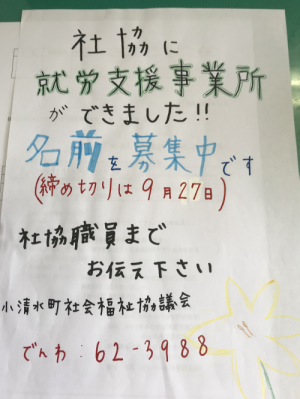 社協に
就労支援事業所
ができました!!
名前を募集中です
(締め切りは9月27日)
社協職員まで
お伝え下さい
小清水町社会福祉協議会
でんわ:62-3988